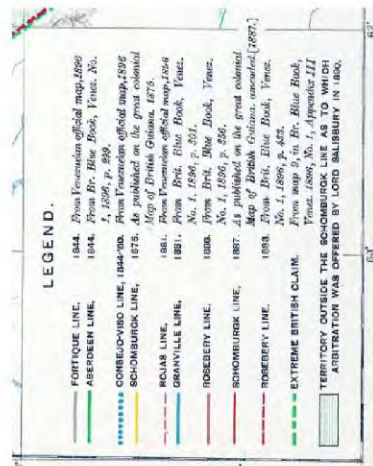 LEGEND.
FORTIQUE LINE, 1844. From Venezuelan official map, 1896
ABERDEEN LINE, 1844. From Br. Blue Book, Venez. No.
1, 1896, p. 299.
CONSEJO-VISO LINE, 1844-'90. From Venezuelan official map, 1896
SCHOMBURGK LINE, 1875. As published on the great colonial
Map of British Guiana. 1875.
ROJAS LINE, 1881. From Venezuelan official map, 1896
GRANVILLE LINE, 1881. From Brit. Blue Book, Venez.
No. 1, 1896, p. 301.
ROSEBERY LINE, 1886. From Brit. Blue Book, Venez.
No. 1, 1896, p.
SCHOMBURGK LINE, 1887. As published on the great colonial
Map of British Guiana. [1887.]
ROSEBERY LINE, 1893. From Brit. Blue Book, Venez.
No. 1, 1896, p. 423.
EXTREME BRITISH CLAIM. From map 9, in Br. Blue Book,
Venez. 1896, No. 1, Appendix III
TERRITORY OUTSIDE THE SCHOMBURGK LINE AS TO WHICH
ARBITRATION WAS OFFERED BY LORD SALISBURY IN 1890.
62°
63°